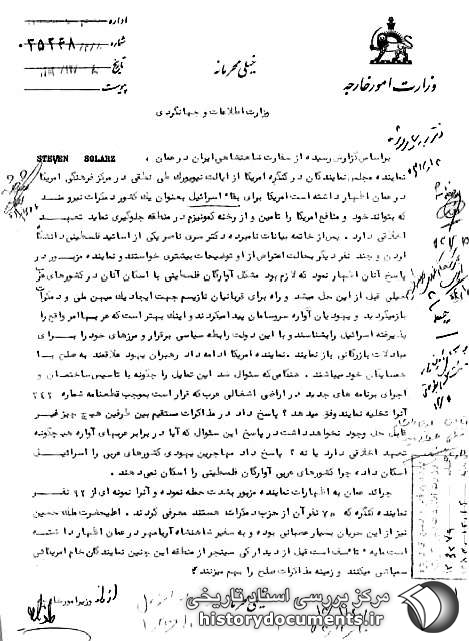 اداره
شماره
تاریخ
پیوست
خیلی محرمانه
وزارت امور خارجه
وزارت اطلاعات و جهانگردی
براساس گزارش رسیده از سفارت شاهنشاهی ایران در عمان ، STEVEN SOLARZ
نماینده مجلس نمایندگان در کنگره امریکا از ایالت نیویورک طی نطقی در مرکز فرهنگی امریکا
در عمان اظهار داشته است امریکا برای بقاء اسرائیل بعنوان یک کشور دمکرات نیرومند
که بتواند خود و منافع امریکا را تامین و از رخنه کمونیزم در منطقه جلوگیری نماید تعهد
اخلاقی دارد . پس از خاتمه بیانات نامبرده دکتر سری ناصر یکی از اساتید فلسطینی دانشگاه
اردن و چند نفر دیگر بحالت اعتراض از او توضیحات بیشتری خواستند و نماینده مزبور در
پاسخ آنان اظهار نمود که لازم بود مشکل آوارگان فلسطینی با اسکان آنان در کشورهای عربی
خیلی قبل از این حل میشد و راه برای قربانیان نازیسم جهت ایجاد یک میهن ملی و دمکرات
باز میگردید و یهودیان آواره سروسامان پیدا میکردند و اینک بهتر است که عربها امر واقع را
پذیرفته اسرائیل را بشناسند و با این دولت رابطه سیاسی برقرار و مرزهای خود را بسرای
مبادلات بازرگانی باز نمایند . نماینده امریکا ادامه داد رهبران یهود علاقمند به صلح با
همسایگان خود میباشند . هنگامی که سئوال شد این تمایل را چگونه با تاسیس ساختمان و
اجرای برنامه های جدید در اراضی اشغالی عرب که قرار است بموجب قطعنامه شماره ۲۴۲
آنرا تخلیه نمایند وفق میدهد ؟ پاسخ داد در مذاکرات مستقیم بین طرفین هیچ چیز غیر
قابل حل وجود نخواهد داشت در پاسخ این سئوال که آیا در برابر عربهای آواره هیچگونه
تعهد اخلاقی دارد یا نه ؟ پاسخ داد مهاجرین یهودی کشورهای عربی را اسرائیل
اسکان داده چرا کشورهای عربی آوارگان فلسطینی را اسکان نمی دهند .
جرائد عمان به اظهارات نماینده مزبور بشدت حمله نموده و آنرا نمونه ای از ۹۲ نفر
نماینده کنگره که ۷۵ نفر آن از حزب دمکرات هستند معرفی کردند . اعلیحضرت ملک حسین
نیز از این جریان بسیار عصبانی بوده و به سفیر شاهنشاه آریامهر در عمان اظهار داشته
است مایه تاسف است قبل از دیدار کی سینجر از منطقه این چنین نمایندگان خام امریکائی
سم پاشی میکنند و زمینه مذاکرات صلح را بهم میزنند .
وزیر امور خارجه
خیلی محرمانه
مرکز بررسی اسناد تاریخی
historydocuments.ir